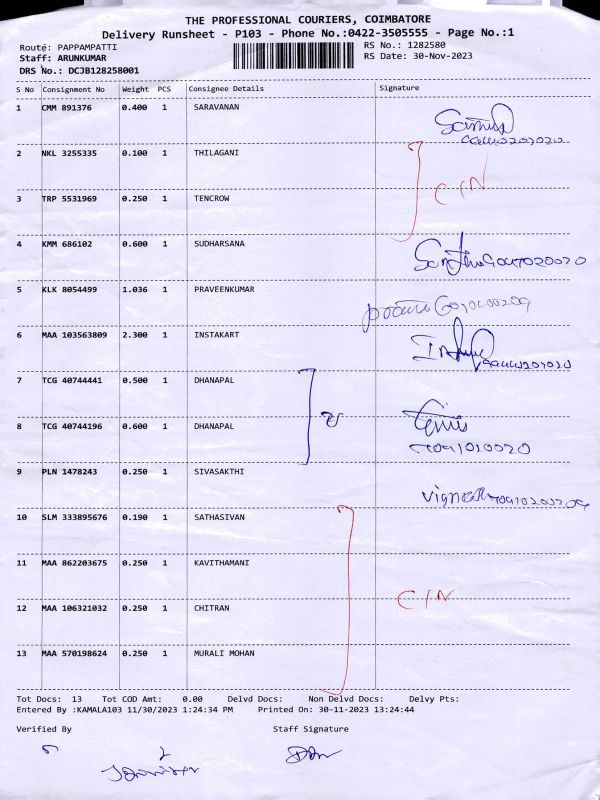 THE PROFESSIONAL COURIERS, COIMBATORE
Delivery Runsheet - P103 - Phone No.:0422-3505555 - Page No.:1
Route: PAPPAMPATTI RS No.: 1282580
Staff: ARUNKUMAR RS Date: 30-Nov-2023
DRS No.: DCJB128258001
S No Consignment No Weight PCS Consignee Details Signature
1 CMM 891376 0.400 1 SARAVANAN
2 NKL 3255335 0.100 1 THILAGANI
CIN
3 TRP 5531969 0.250 1 TENCROW
4 KMM 686102 0.600 1 SUDHARSANA
5 KLK 8054499 1.036 1 PRAVEENKUMAR
6 MAA 103563809 2.300 1 INSTAKART
7 TCG 40744441 0.500 1 DHANAPAL
8 TCG 40744196 0.600 1 DHANAPAL
9 PLN 1478243 0.250 1 SIVASAKTHI
10 SLM 333895676 0.190 1 SATHASIVAN
11 MAA 862203675 0.250 1 KAVITHAMANI
CIN
12 MAA 106321032 0.250 1 CHITRAN
13 MAA 570198624 0.250 1 MURALI MOHAN
Tot Docs: 13 Tot COD Amt: 0.00 Delvd Docs: Non Delvd Docs: Delvy Pts:
Entered By :KAMALA103 11/30/2023 1:24:34 PM Printed On: 30-11-2023 13:24:44
Verified By Staff Signature